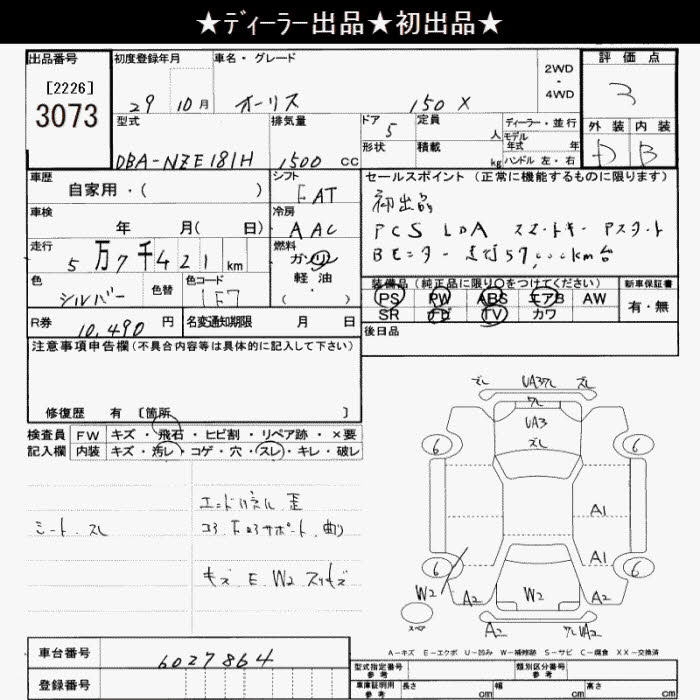 ★ディーラー出品★初出品★
出品番号 初度登録年月 車名・グレード 2WD・4WD 評価点
[2226]
3073
29 10月 オーリス 150 X 3
型式 排気量 ドア 定員 ディーラー・並行 外装 内装
5 人 モデル年式 年
DBA-NZE181H 1500 cc 形状 積載 kg ハンドル 左・右 D B
車歴 シフト セールスポイント (正常に機能するものに限ります)
自家用・( ) FAT 初出品
車検 冷房 PCS LDA スマートキー Pスタート
年 月( 日) AAC Bモニター 走行57,000km台
走行 燃料
5万7千421km ガソリン
色 色替 色コード 軽油・ 装備品(純正品に限り〇をつけてください) 新車保証書
シルバー 1F7 ( ) PS PW ABS エアB AW 有・無
SR ナビ TV カワ
R券 10,490 円 名変通知期限 月 日 後日品
注意事項申告欄(不具合内容等は具体的に記入して下さい)
修復歴 有 〔箇所 〕
検査員 FW キズ・飛石・ヒビ割・リペア跡・×要
記入欄 内装 キズ・汚レ・コゲ・穴・スレ・キレ・破レ
エンドパネル 歪
シート スレ コア 下コアサポート 曲り
キズ E W2 スリキズ
ズレ UA3ワレ ズレ
ワレ
UA3
ズレ
6 6
A1
A1
6 6
W2 A2 W2 A2
スペア A2 ワレUA2
A-キズ E-エクボ U-凹み W-補修跡 S-サビ C-腐食 XX-交換済
車台番号 6027864 型式指定番号 参考 類別区分番号 参考
登録番号 車庫証明用 参考 長さ cm 幅 cm 高さ cm